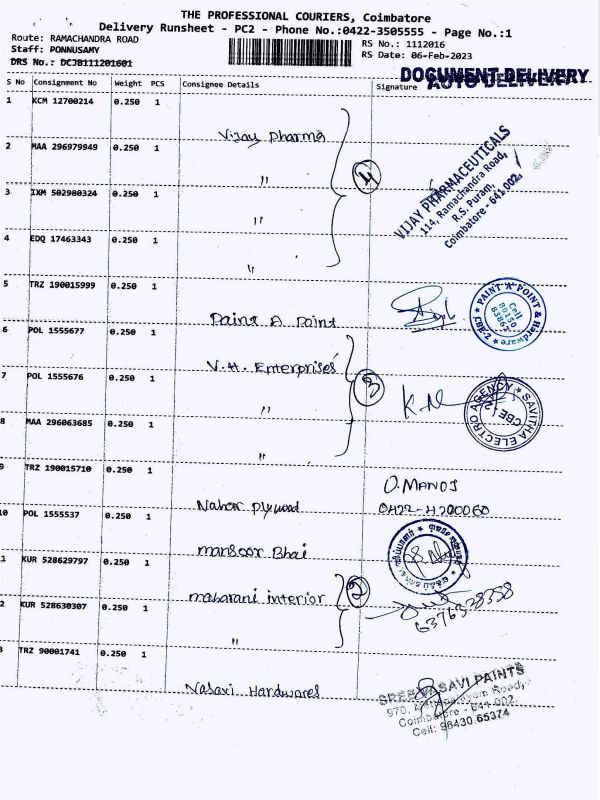 THE PROFESSIONAL COURIERS, Coimbatore
Delivery Runsheet - PC2 - Phone No.:0422-3505555 - Page No.:1
Route: RAMACHANDRA ROAD
RS No.: 1112016
Staff: PONNUSAMY
RS Date: 06-Feb-2023
DRS No.: DCJB111201601
DOCUMENT DELIVERY
AUTO DELIVERY
S No Consignment No Weight PCS Consignee Details Signature
1 KCM 12700214 0.250 1 Vijay pharma
2 MAA 296979949 0.250 1 "
3 IXM 502980324 0.250 1 "
4 EDQ 17463343 0.250 1 "
4
VIJAY PHARMACEUTICALS
114, Ramachandra Road,
R.S. Puram,
Coimbatore - 641 002.
5 TRZ 190015999 0.250 1 Paint A Point
PAINT 'A' POINT & Hardware
Cell
80150
83863
CBE-2
6 POL 1555677 0.250 1 V.H. Enterprises
7 POL 1555676 0.250 1 "
8 MAA 296063685 0.250 1 "
3
SAVITHA ELECTRO AGENCY
CBE-2
9 TRZ 190015710 0.250 1 Nahar plywood
O.MANOJ
0422-4200060
10 POL 1555537 0.250 1 mansoor Bhai
1 KUR 528629797 0.250 1 maharani interior
2 KUR 528630307 0.250 1 "
2
6376328358
3 TRZ 90001741 0.250 1 Vasavi Hardwares
SREE VASAVI PAINTS
Coimbatore - 641 002.
Cell: 98430 65374